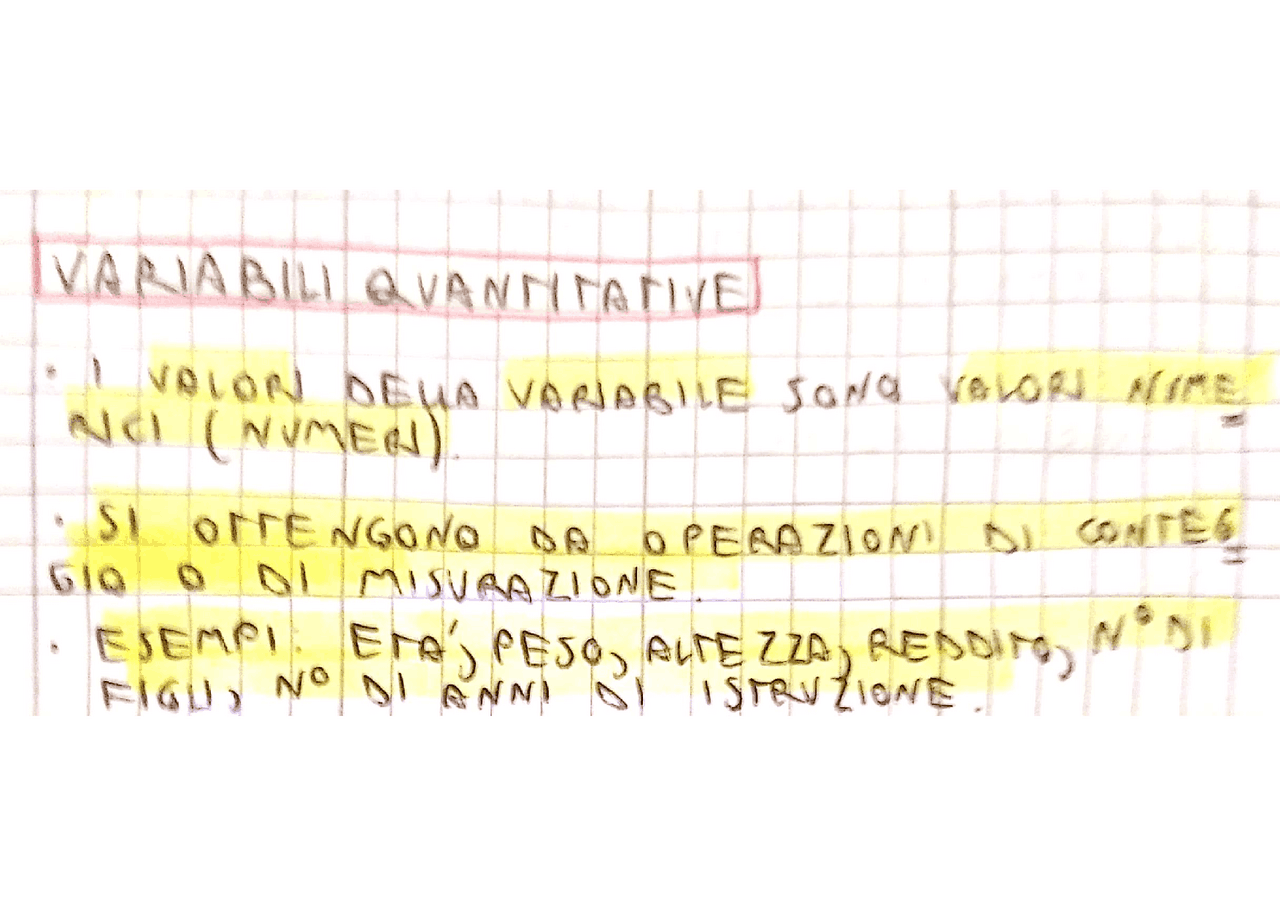 VARIABILI QUANTITATIVE
· I VALORI DELLA VARIABILE SONO VALORI NUME
RICI (NUMERI).
· SI OTTENGONO DA OPERAZIONI DI CONTEG
GIO O DI MISURAZIONE.
· ESEMPI: ETA', PESO, ALTEZZA, REDDITO, N° DI
FIGLI, N° DI ANNI DI ISTRUZIONE.